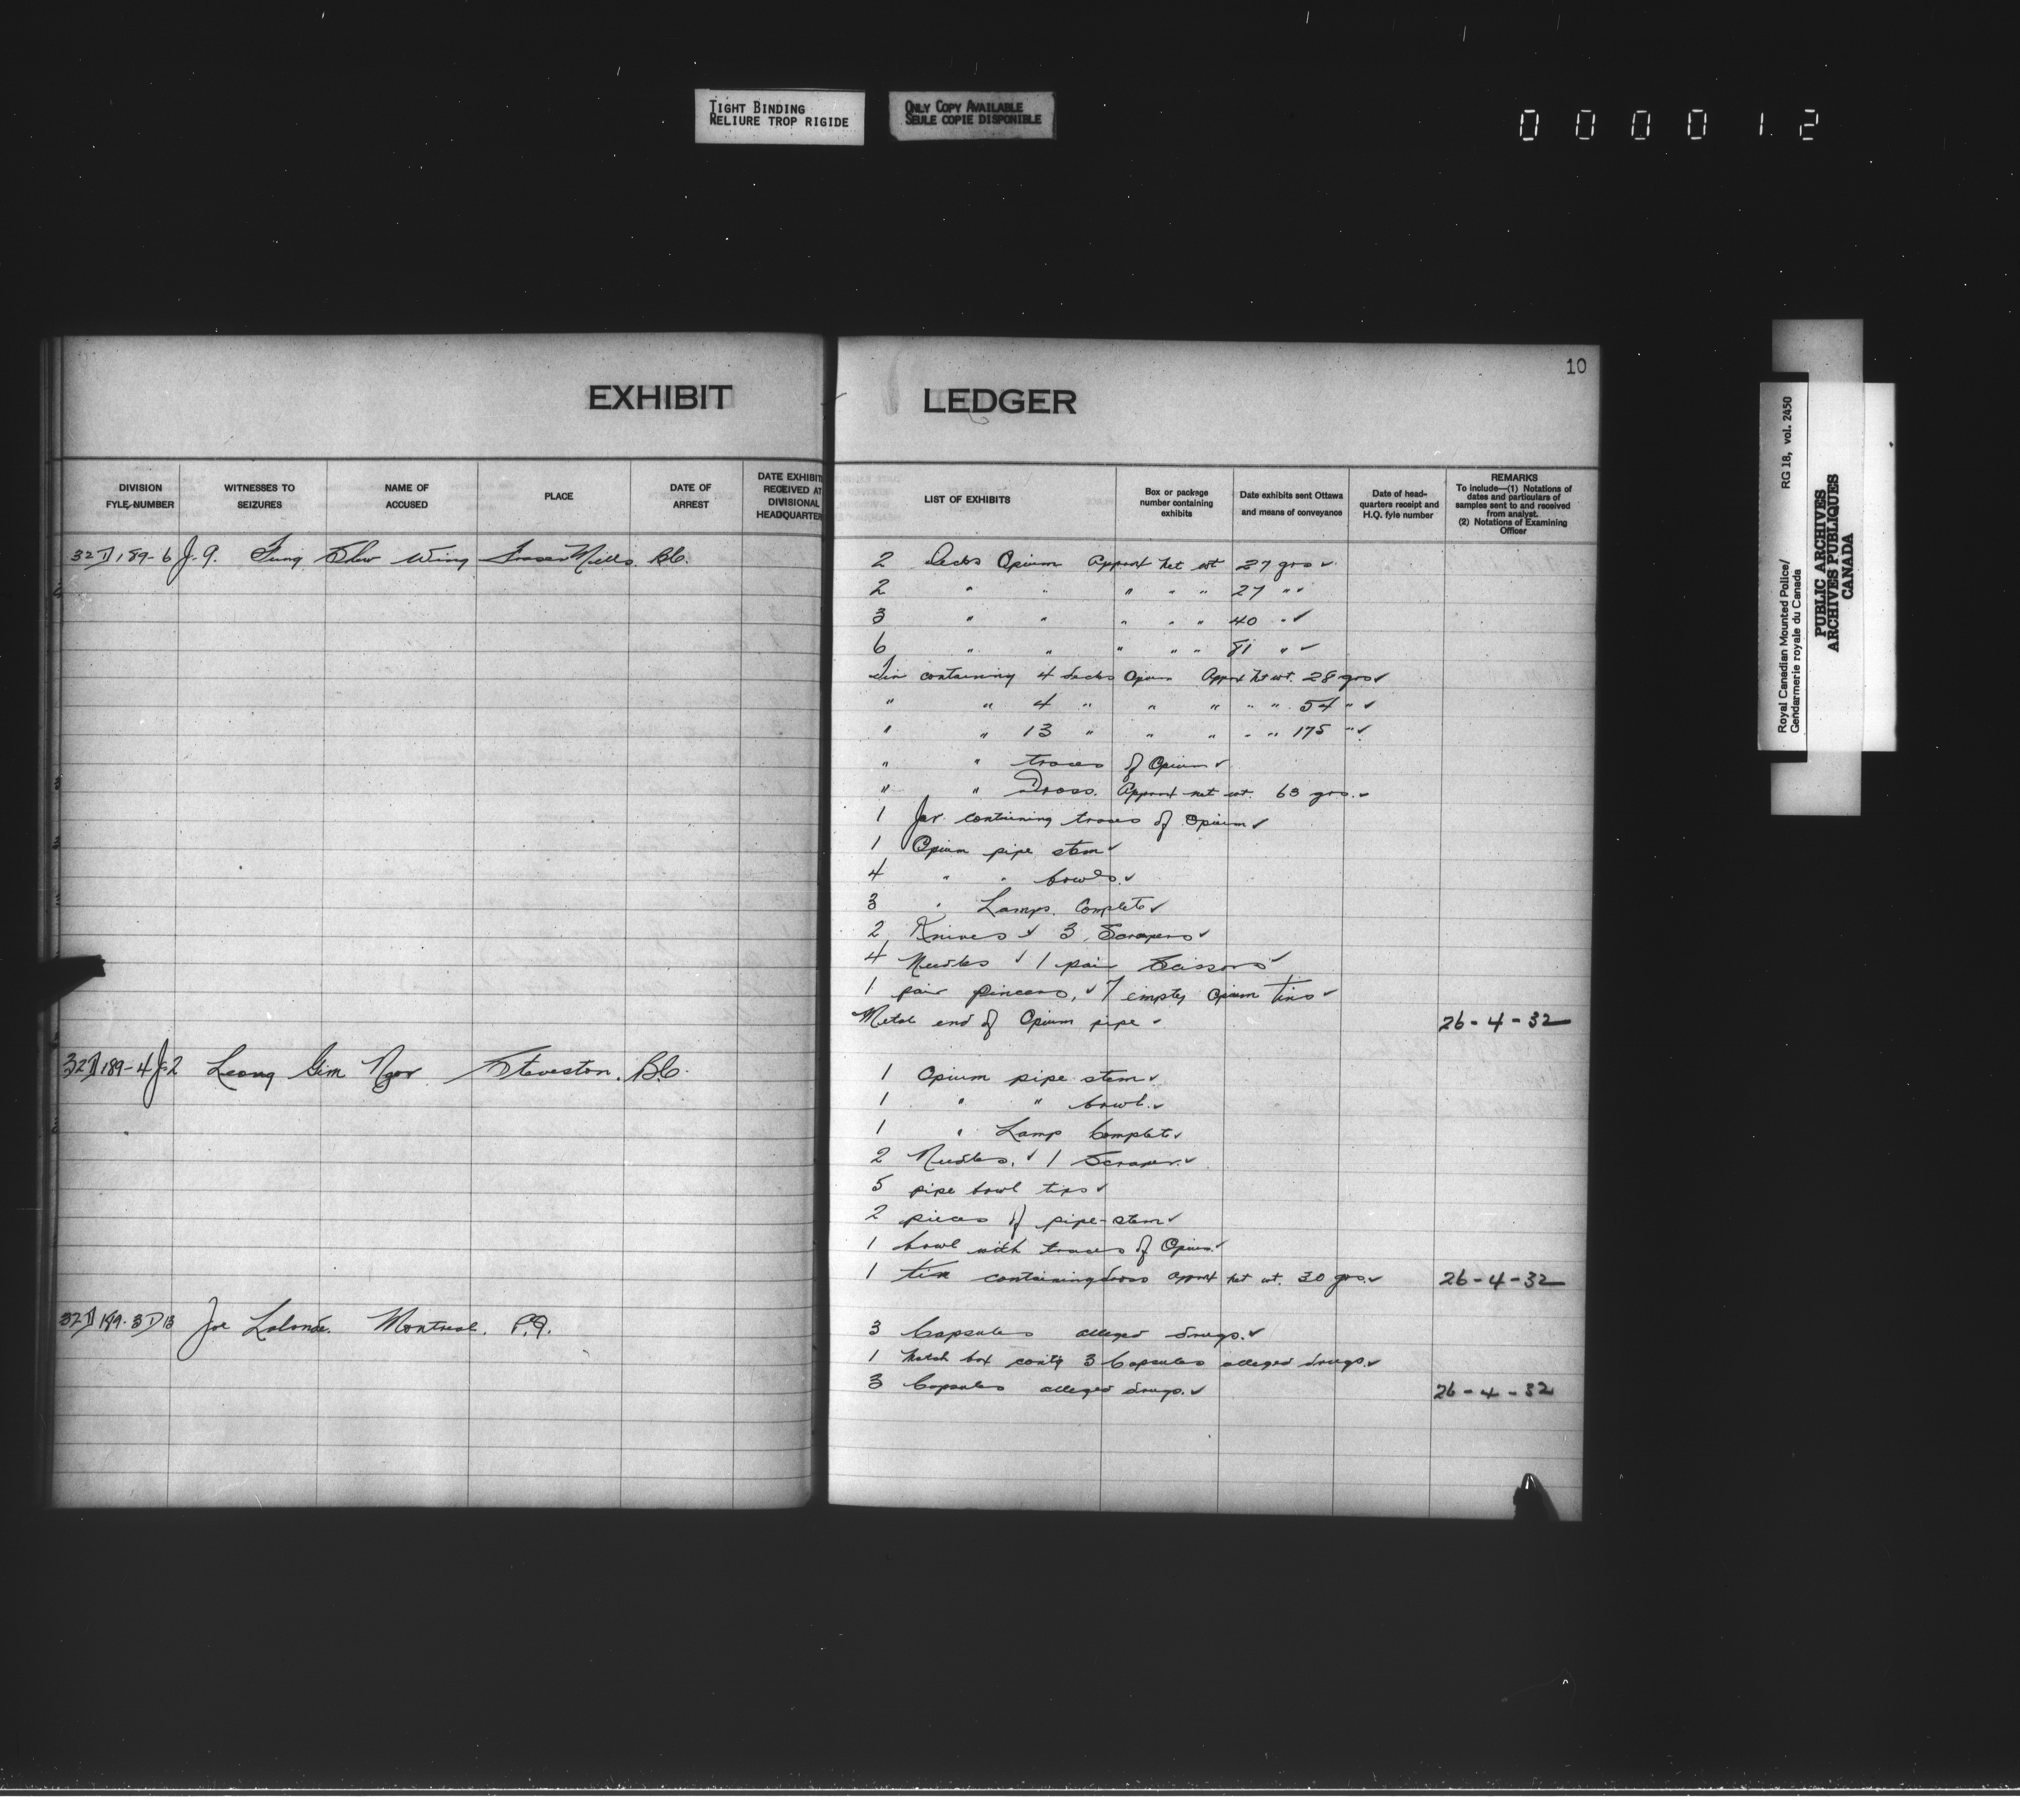 TIGHT BINDING
RELIURE TROP RIGIDE
ONLY COPY AVAILABLE
SEULE COPIE DISPONIBLE
000012
10
EXHIBIT LEDGER
DIVISION FYLE NUMBER
WITNESSES TO SEIZURES
NAME OF ACCUSED
PLACE
DATE OF ARREST
DATE EXHIBIT RECEIVED AT DIVISIONAL HEADQUARTER
LIST OF EXHIBITS
Box or package number containing exhibits
Date exhibits sent Ottawa and means of conveyance
Date of head-quarters receipt and H.Q. fyle number
REMARKS
To include—(1) Notations of dates and particulars of samples sent to and received from analyst.
(2) Notations of Examining Officer
32D189-6 J.9. Fung Show Wing Fraser Mills B.C.
2 Decks Opium Approx net wt 27 grs ✓
2 " " " " " 27 " ✓
3 " " " " " 40 " ✓
6 " " " " " 81 " ✓
Tin containing 4 decks Opium Approx net wt. 28 grs ✓
" " 4 " " " " " 54 " ✓
" " 13 " " " " " 175 " ✓
" " traces of Opium ✓
" " Dross. Approx net wt. 63 grs. ✓
1 Jar containing traces of Opium ✓
1 Opium pipe stem ✓
4 " " bowls. ✓
3 " Lamps. Complete ✓
2 Knives ✓ 3 Scrapers ✓
4 Needles ✓ 1 pair Scissors ✓
1 pair pincers, ✓ 7 empty Opium tins ✓
Metal end of Opium pipe ✓ 26-4-32
32D189-4 J-2 Leong Gim Ngor Steveston. B.C.
1 Opium pipe stem ✓
1 " " bowl. ✓
1 " Lamp Complete ✓
2 Needles, ✓ 1 Scraper. ✓
5 pipe bowl tips ✓
2 pieces of pipe-stem ✓
1 bowl with traces of Opium. ✓
1 tin containing dross approx net wt. 30 grs. ✓ 26-4-32
32D189-3 D13 Joe Lalonde. Montreal. P.Q.
3 Capsules alleged drugs. ✓
1 Match box cont'g 3 Capsules alleged drugs. ✓
3 Capsules alleged drugs. ✓ 26-4-32
Royal Canadian Mounted Police/
Gendarmerie royale du Canada
RG 18, vol. 2450
PUBLIC ARCHIVES
ARCHIVES PUBLIQUES
CANADA